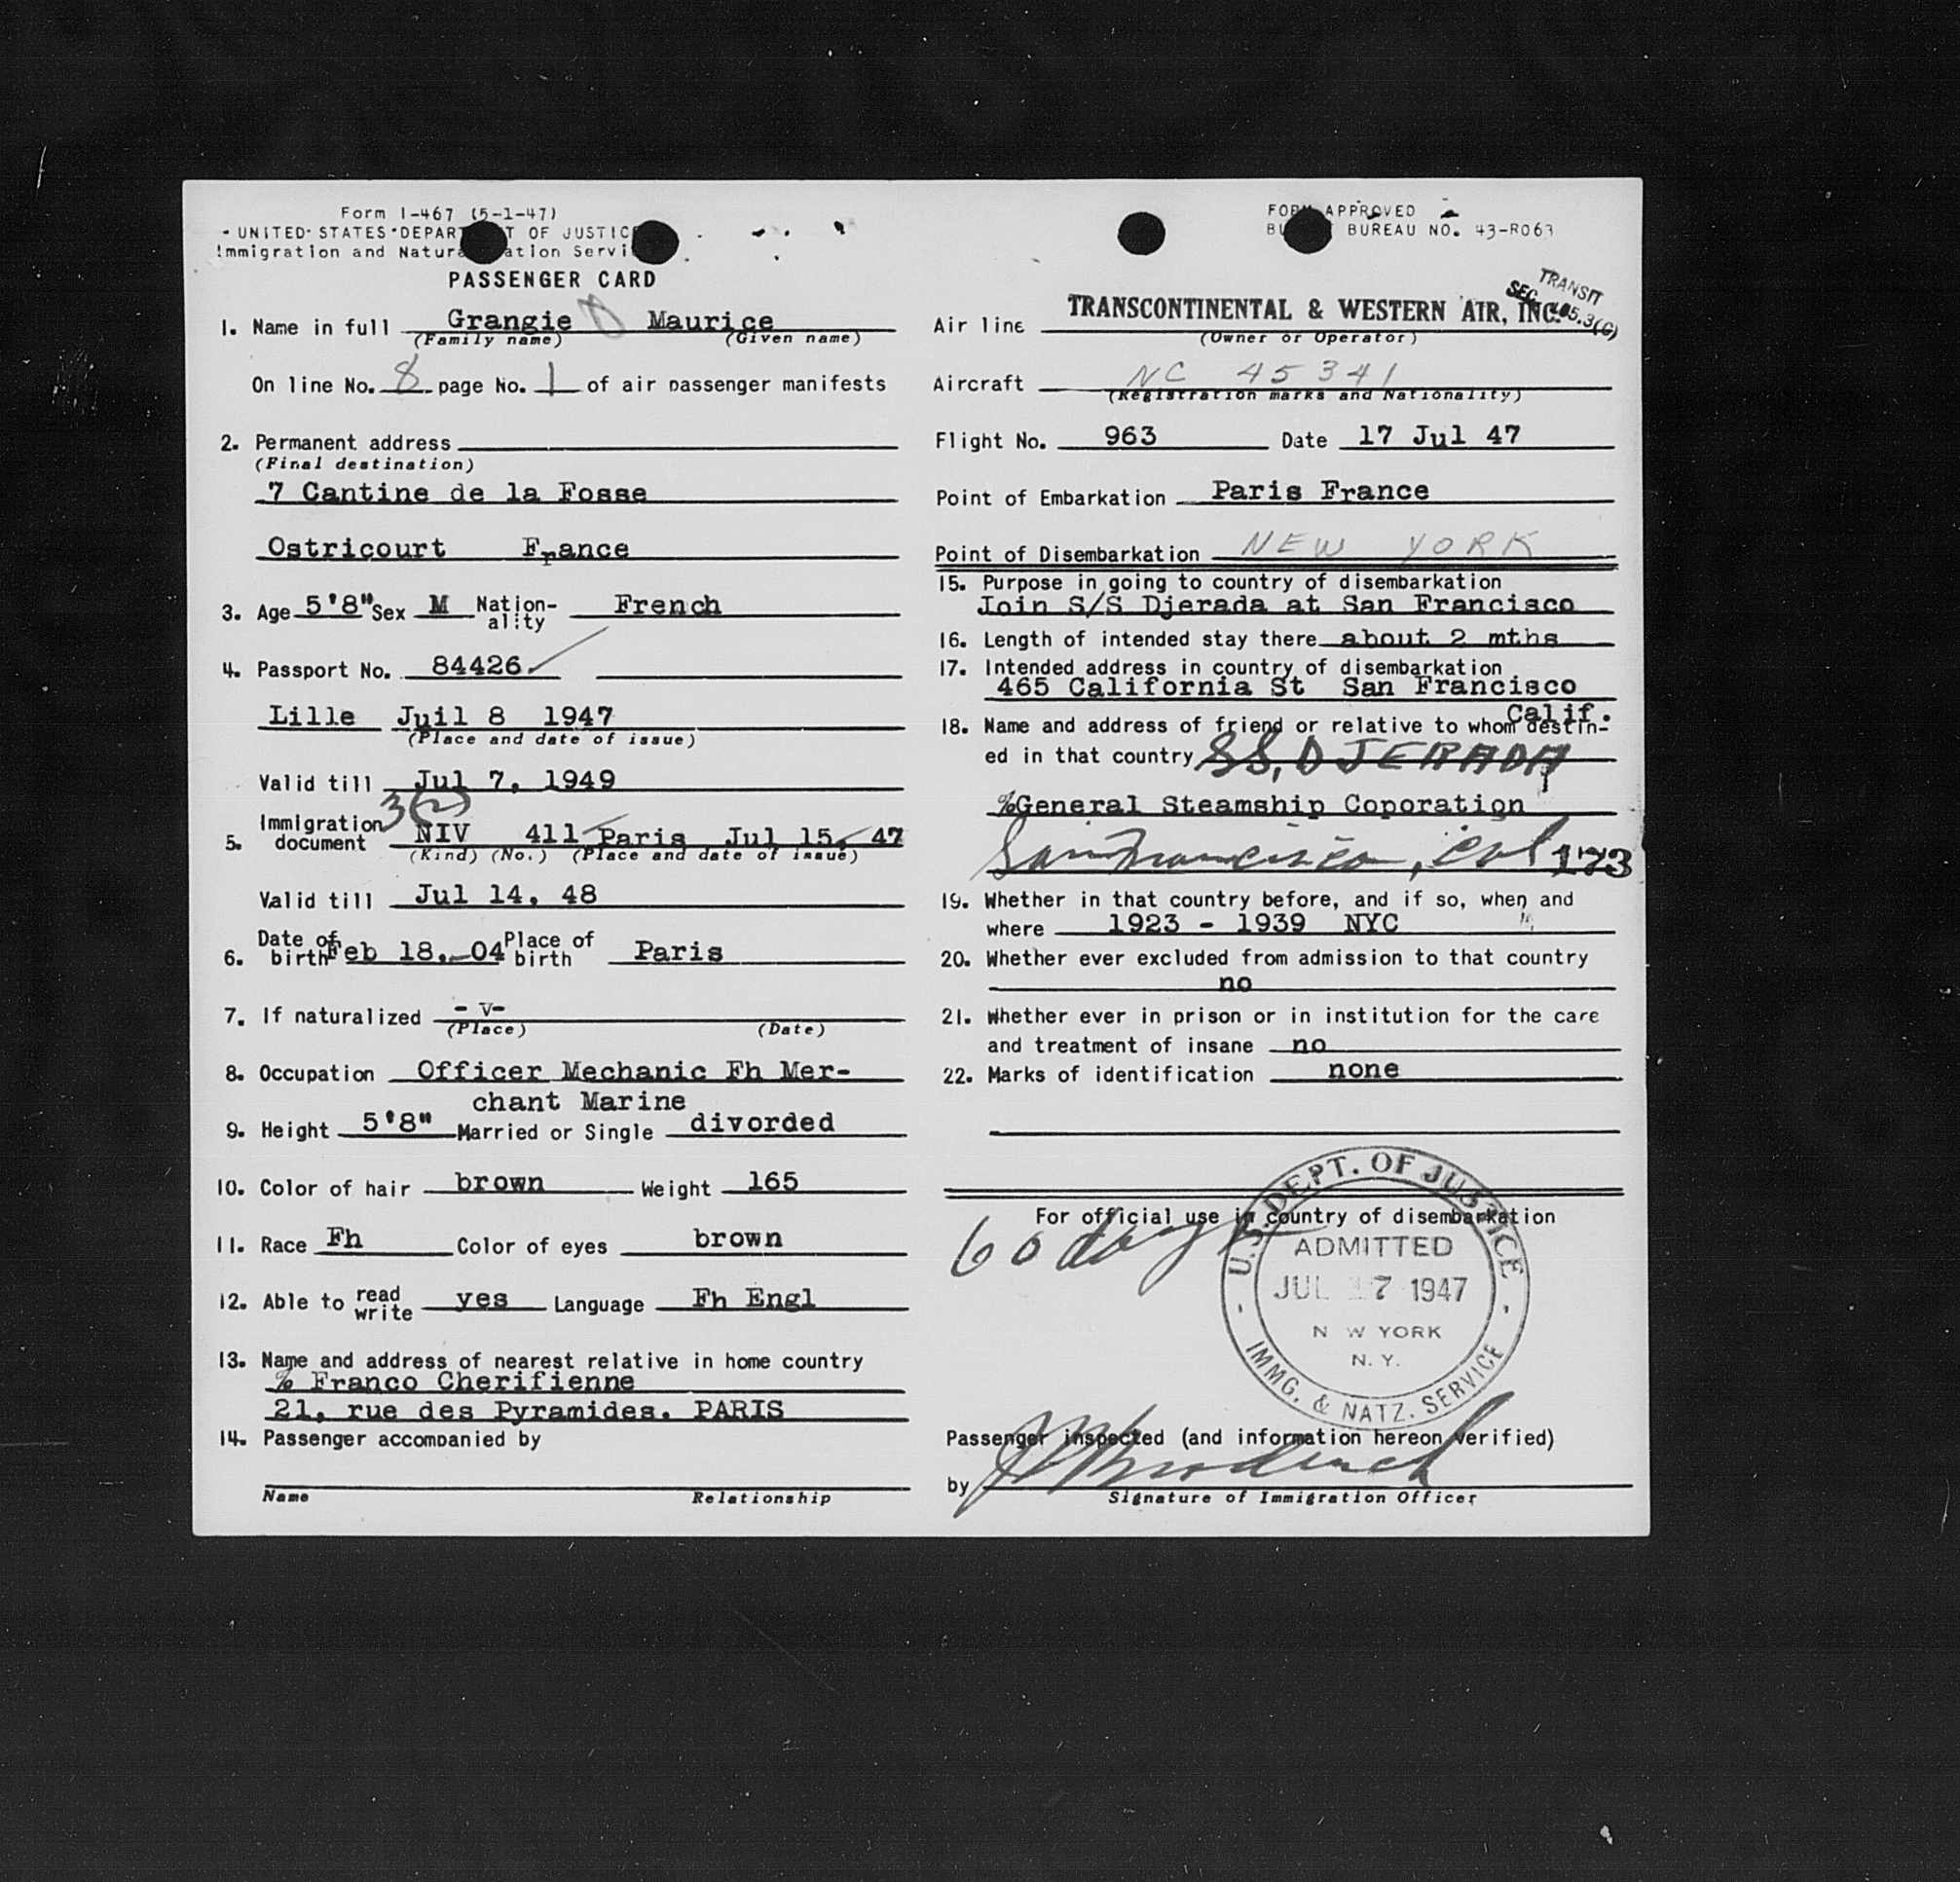 Form I-467 (5-1-47)
UNITED STATES DEPAR T OF JUSTIC
Immigration and Natura ation Servi
PASSENGER CARD
1. Name in full Grangie Maurice
(Family name) (Given name)
On line No. 8 page No. 1 of air passenger manifests
2. Permanent address
(Final destination)
7 Cantine de la Fosse
Ostricourt France
3. Age 5'8" Sex M Nation-ality French
4. Passport No. 84426
Lille Juil 8 1947
(Place and date of issue)
Valid till Jul 7, 1949
3(2)
5. Immigration document NIV 411 Paris Jul 15, 47
(Kind) (No.) (Place and date of issue)
Valid till Jul 14, 48
6. Date of birth Feb 18, 04 Place of birth Paris
7. If naturalized - v-
(Place) (Date)
8. Occupation Officer Mechanic Fh Mer-
chant Marine
9. Height 5'8" Married or Single divorded
10. Color of hair brown Weight 165
11. Race Fh Color of eyes brown
12. Able to read write yes Language Fh Engl
13. Name and address of nearest relative in home country
% Franco Cherifienne
21, rue des Pyramides. PARIS
14. Passenger accompanied by
Name Relationship
FORM APPROVED
BU T BUREAU NO. 43-R063
TRANSIT
SEC. 105.3(G)
Air line TRANSCONTINENTAL & WESTERN AIR, INC.
(Owner or Operator)
Aircraft NC 45341
(Registration marks and Nationality)
Flight No. 963 Date 17 Jul 47
Point of Embarkation Paris France
Point of Disembarkation NEW YORK
15. Purpose in going to country of disembarkation
Join S/S Djerada at San Francisco
16. Length of intended stay there about 2 mths
17. Intended address in country of disembarkation
465 California St San Francisco
Calif.
18. Name and address of friend or relative to whom destin-
ed in that country SS, DJERADA
%General Steamship Coporation
San Francisco, Cal 123
19. Whether in that country before, and if so, when and
where 1923 - 1939 NYC
20. Whether ever excluded from admission to that country
no
21. Whether ever in prison or in institution for the care
and treatment of insane no
22. Marks of identification none
For official use in country of disembarkation
60 days
U.S. DEPT. OF JUSTICE
ADMITTED
JUL 17 1947
N W YORK
N. Y.
IMMG. & NATZ. SERVICE
Passenger inspected (and information hereon verified)
by
Signature of Immigration Officer